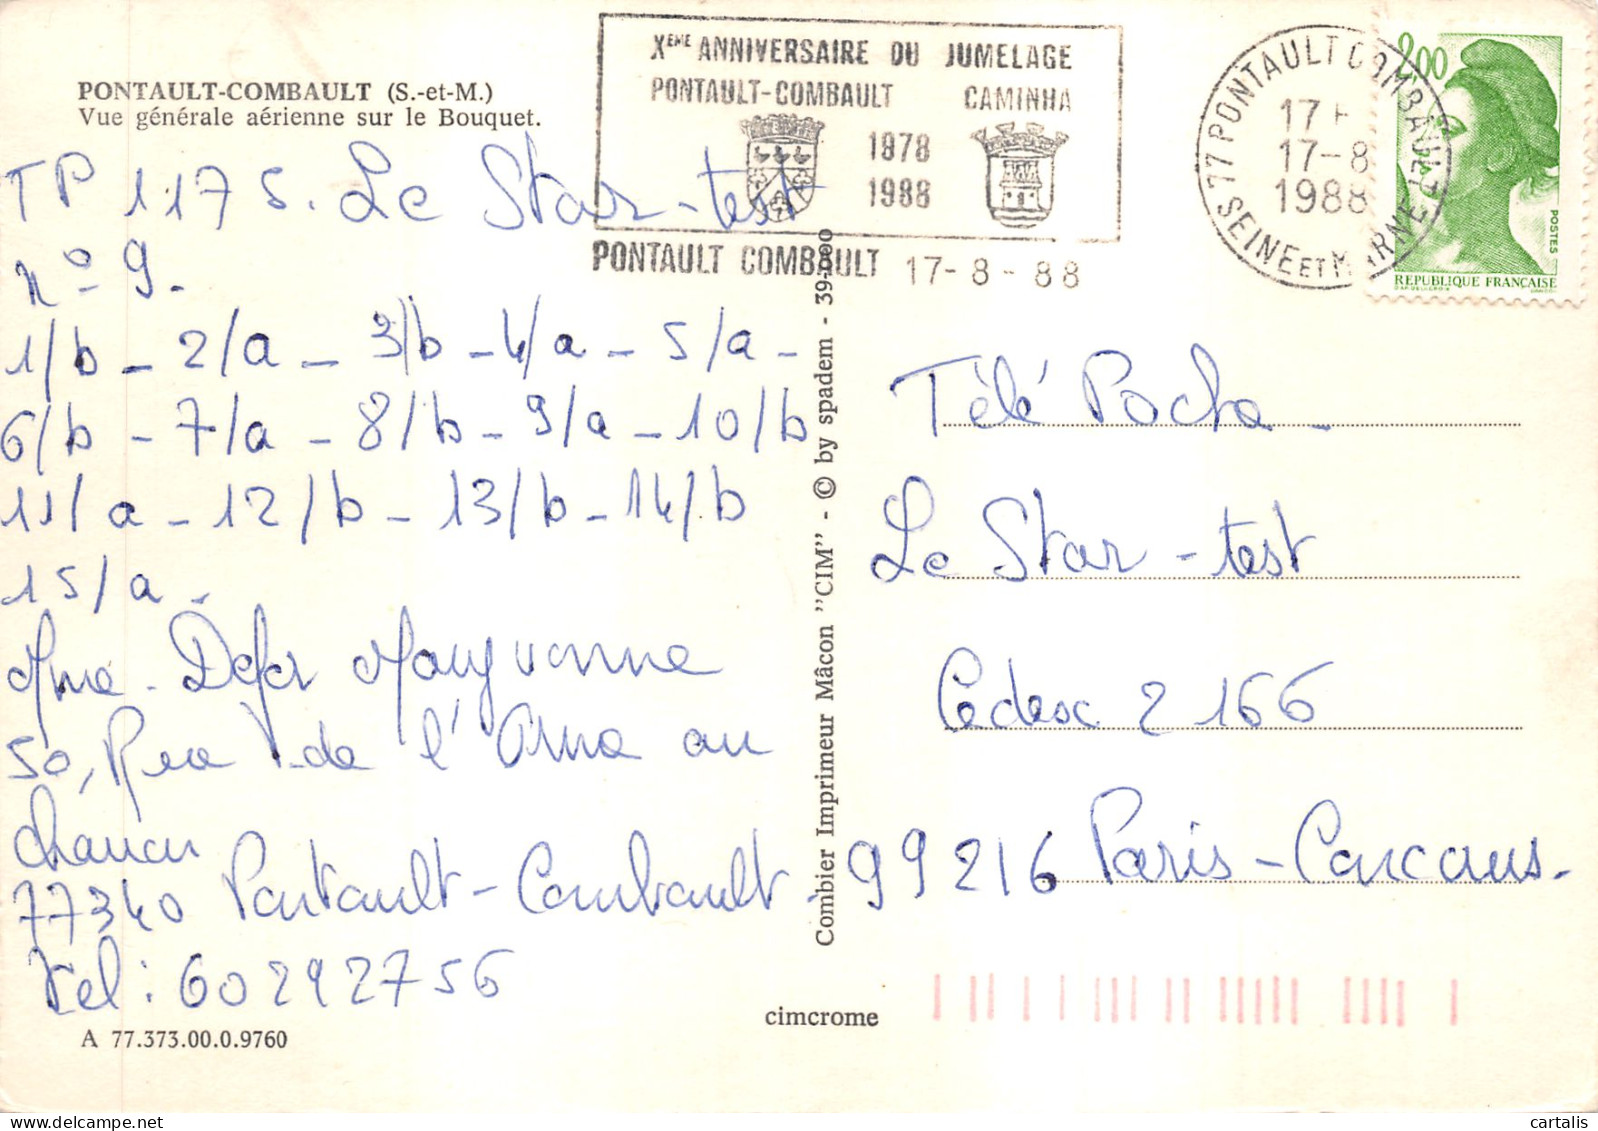 PONTAULT-COMBAULT (S.-et-M.)
Vue générale aérienne sur le Bouquet.
XÈME ANNIVERSAIRE DU JUMELAGE
PONTAULT-COMBAULT CAMINHA
1978
1988
PONTAULT COMBAULT 17-8-88
77 PONTAULT COMBAULT
17
17-8
1988
SEINE ET MARNE
2,00
POSTES
REPUBLIQUE FRANÇAISE
TP 1175. Le Star-test
n° 9.
1/b - 2/a - 3/b - 4/a - 5/a -
6/b - 7/a - 8/b - 9/a - 10/b
11/a - 12/b - 13/b - 14/b
15/a.
Mme. Defer
50, Rue de l'Orme au
chancu
77340 Pontault-Combault.
Tel: 60292756
A 77.373.00.0.9760
Combier Imprimeur Mâcon "CIM" - © by spadem - 39-000
cimcrome
Télé Poche -
Le Star-test
Cedex 2166
99216 Paris-Concours.
CARTALIS